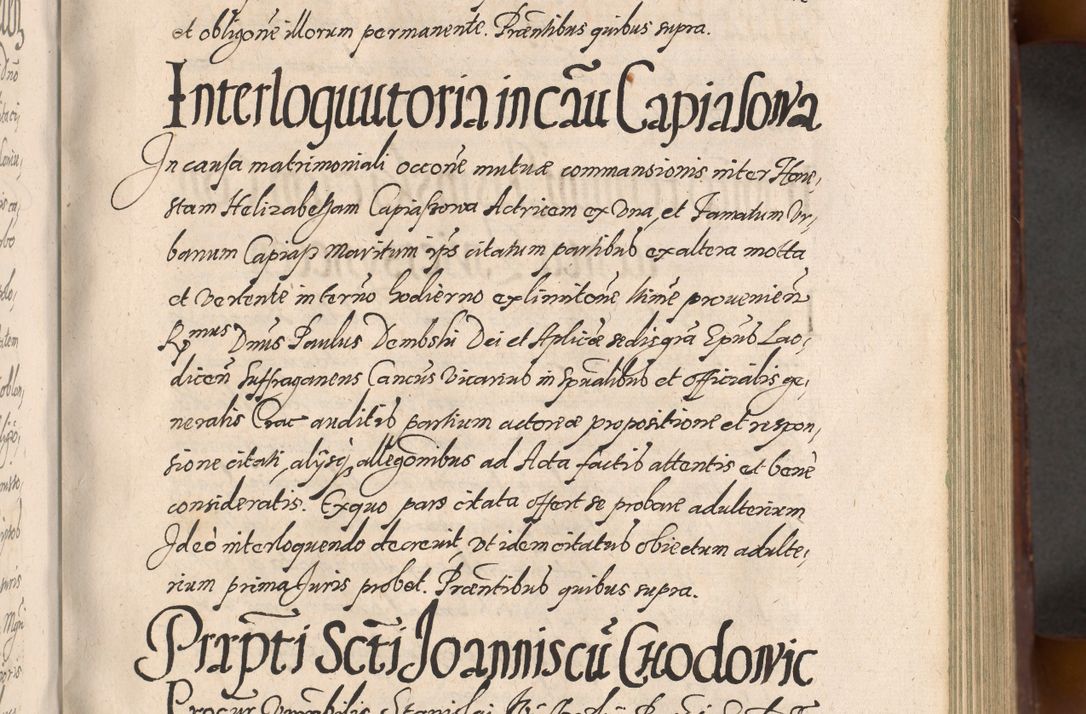 et obligoñe illorum permanente. Præntibus quibus supra.
Interloquutoria in cãu Capiasowa
In causa matrimoniali occoñe mutuæ commansionis inter Hone,
stam Helizabetham Capiaszowa Actricem ex Una, et Famatum Ur,
banum Capiasz Maritum ips citatum partibus ex altera mota
et Vertente in termo hodierno ex limitõne Kmẽ provenieñ
Rmus Dnus Paulus Dembski Dei et Aplicæ sedis grã Epus Lao,
diceñ Suffraganeus Cancus Vicarius in Spualibus et officialis ge,
neralis Crac auditis partium actoreæ propositione et respon,
sione citati alysq allegõnibus ad Acta factis attentis et bene
consideratis. Exquo pars citata offert se probare adulterium
Ideò interloquendo decrevit Ut idem citatus obiectum adulte,
rium prima Juris probet. Præntibus quibus supra.
Præpti Scti Joannis cũ Chodowic
Procur Venerabilis Stanislai